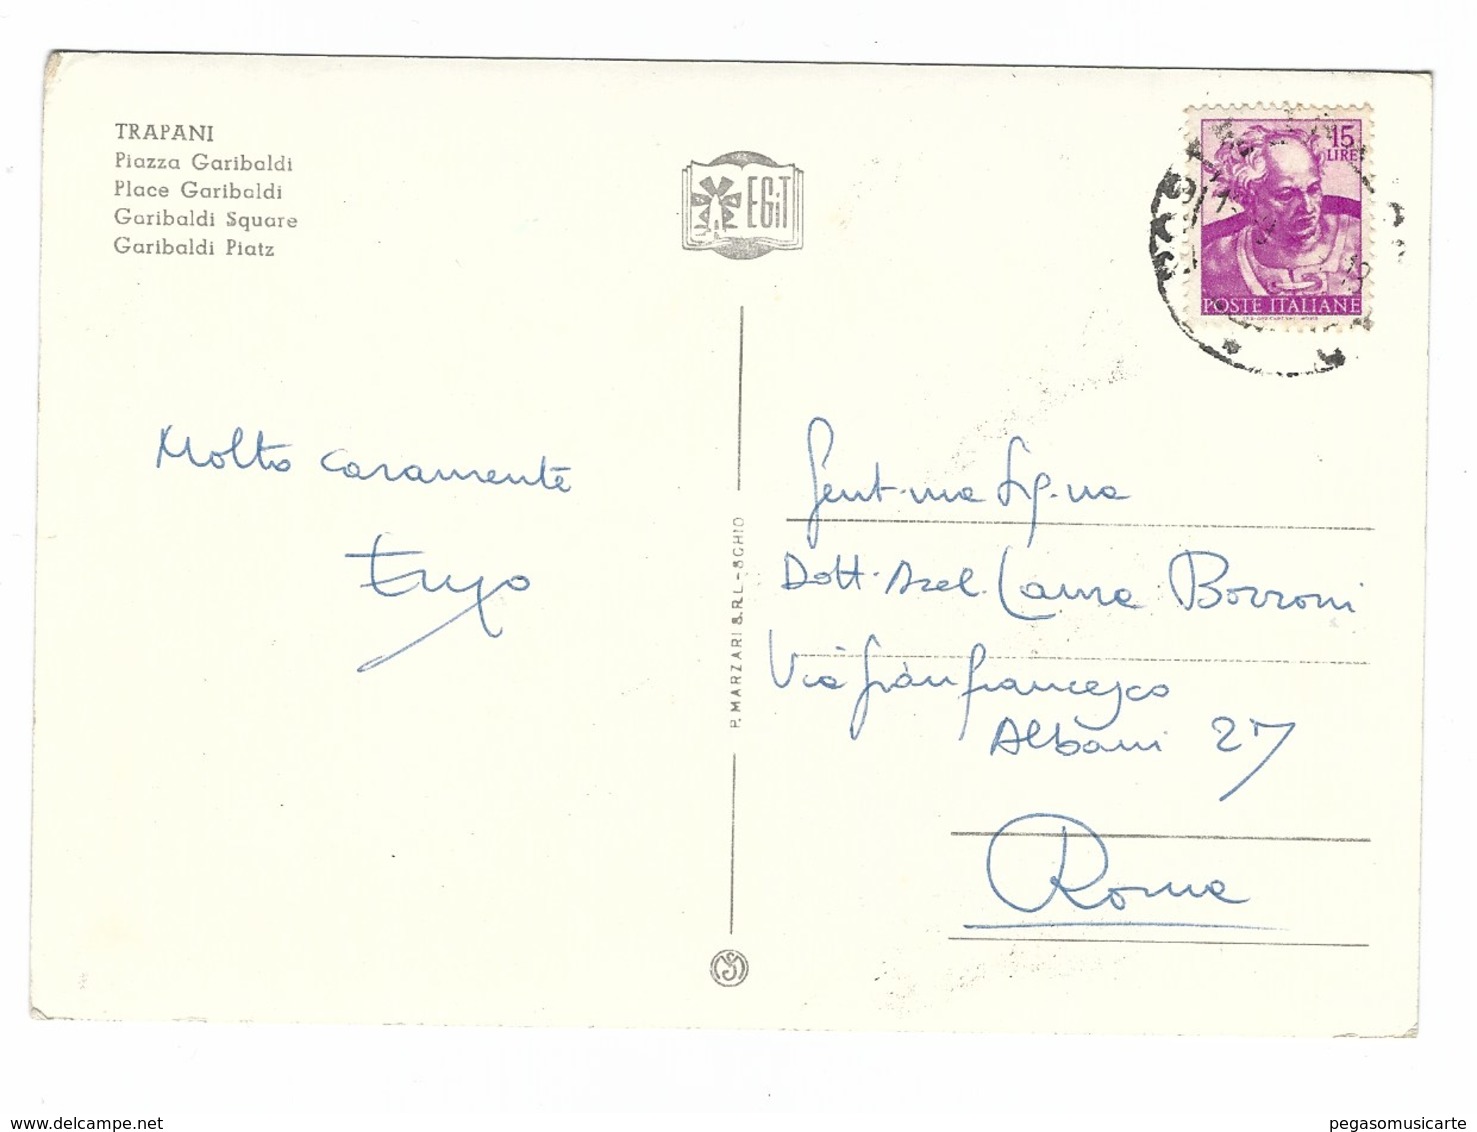 TRAPANI
Piazza Garibaldi
Place Garibaldi
Garibaldi Square
Garibaldi Piatz
EGiT
15
LIRE
POSTE ITALIANE
Molto caramente
P. MARZARI S.R.L. - SCHIO
Gent.ma Sig.na
Dott. Laura Borroni
Via Gianfrancesco
Albani 27
Roma
delcampe.net
pegasomusicarte